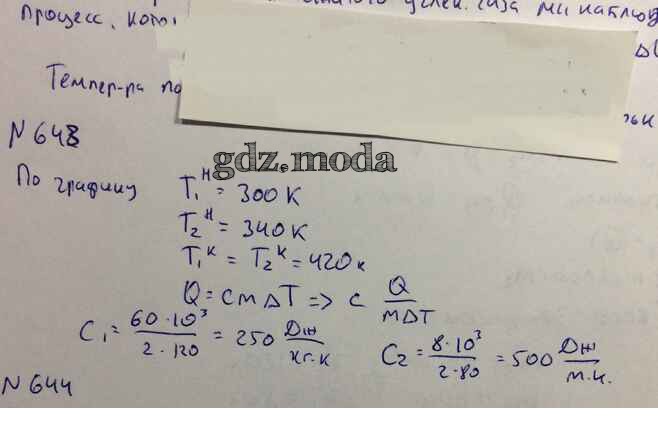 процесс, кот углек. газа мы наблюд
Темпер-ра по
N 648
gdz.moda
По графику T₁ᴴ = 300 К
T₂ᴴ = 340 К
T₁ᴷ = T₂ᴷ = 420 к
Q = cm∆T => c Q/m∆T
C₁ = 60·10³/2·120 = 250 Дж/кг·к C₂ = 8·10³/2·80 = 500 Дж/м.к.
N 644